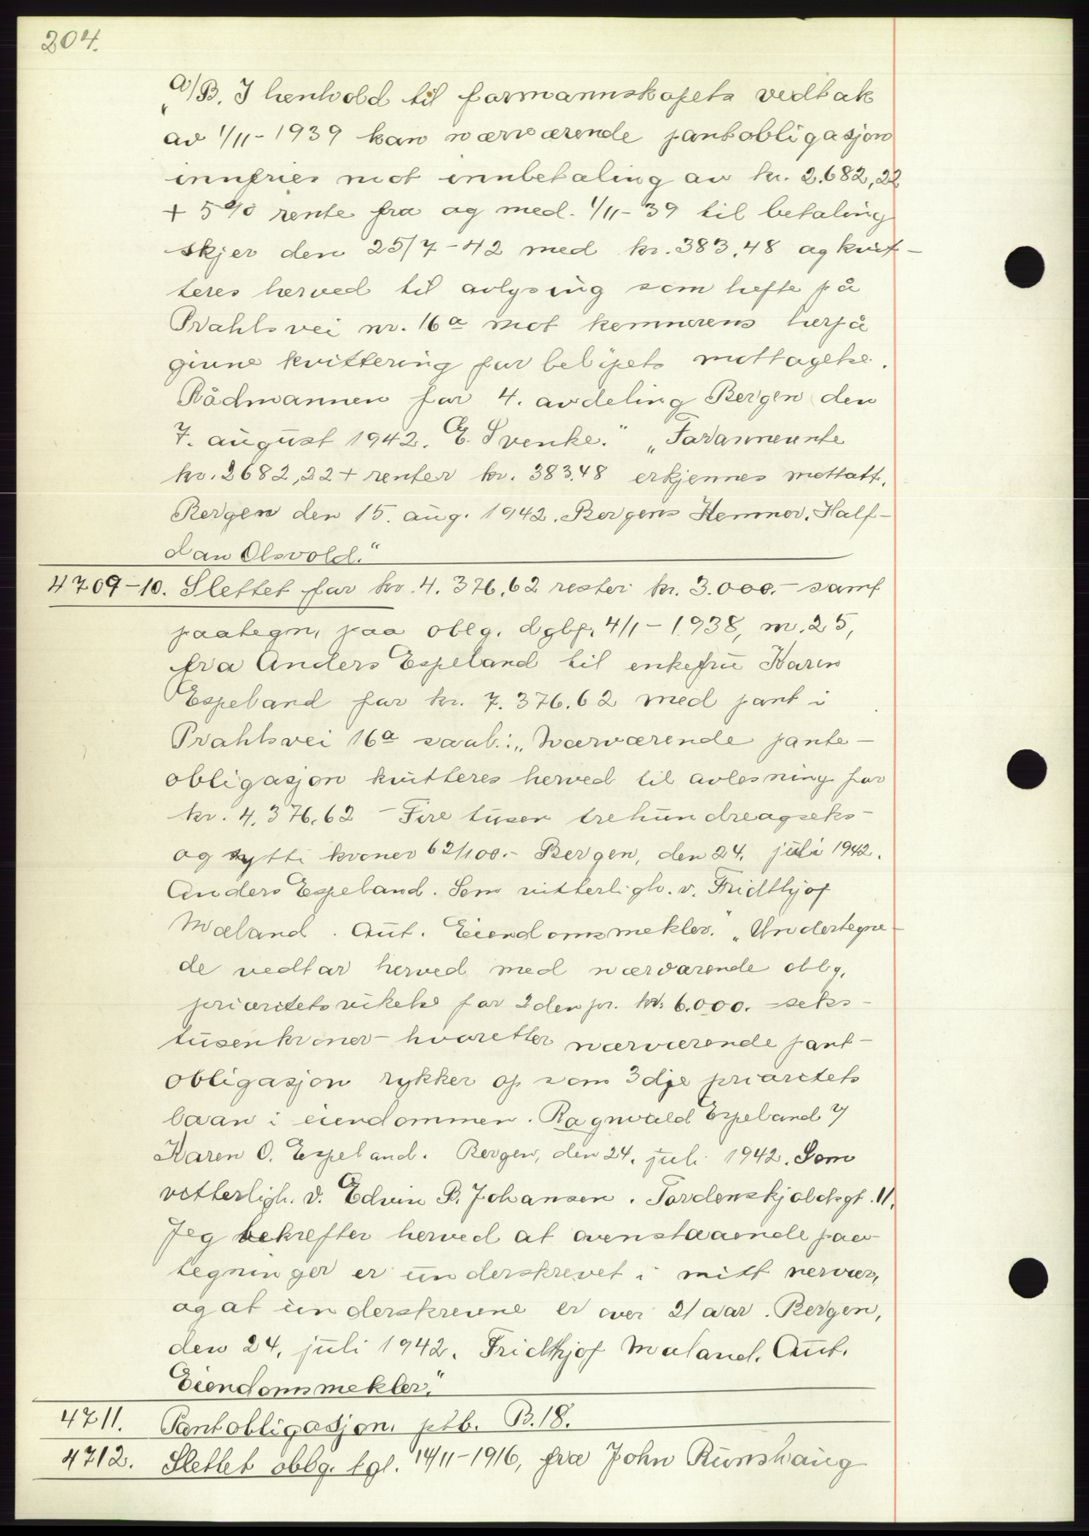 204.
"a/B. I henhold til formannskapets vedtak
av 1/11-1939 kan nærværende pantobligasjon
innfries mot innbetaling av kr. 2.682,22
+ 5% rente fra og med 1/11-39 til betaling
skjer den 25/7-42 med kr. 383,48 og kvit-
teres herved til avlysning som hefte på
Prahlsvei nr. 16a mot kemnerens herpå
givne kvittering for beløpets mottagelse.
Rådmannen for 4. avdeling Bergen den
7. august 1942. E. Svenke." "Forannevnte
kr. 2682,22 + renter kr. 383.48 erkjennes mottatt.
Bergen den 15. aug. 1942. Bergens Kemner. Half-
dan Olsvold."
4709-10. Slettet for kr. 4.376,62 rester kr. 3.000.- samt
paategn. paa oblg. dgbf. 4/1-1938, nr. 25,
fra Anders Espeland til enkefru Karen
Espeland for kr. 7.376.62 med pant i
Prahlsvei 16a saal.: "Nærværende pante-
obligasjon kvitteres herved til avlesning for
kr. 4.376.62 - Fire tusen trehundreogseks-
og sytti kroner 62/100.- Bergen, den 24. juli 1942.
Anders Espeland. Som vitterligh. v. Fridthjof
Mæland. Aut. Eiendomsmekler." "Undertegne-
de vedtar herved med nærværende oblg.
prioritetsvikelse for 2den pr. kr. 6.000. - seks-
tusenkroner - hvoretter nærværende pant-
obligasjon rykker op som 3dje prioritets
laan i eiendommen. Ragnvald Espeland
Karen O. Espeland. Bergen, den 24. juli 1942. Som
vitterligh. v. Edvin B. Johansen. Tordenskjoldsgt. 11.
Jeg bekrefter herved at ovenstaaende paa-
tegninger er underskrevet i mitt nervær,
og at underskrevne er over 21 aar. Bergen,
den 24. juli 1942. Fridthjof Mæland. Aut.
Eiendomsmekler."
4711. Pantobligasjon, ptb. B.18.
4712. Slettet oblg. tgl. 14/11-1916, fra John Runshaug